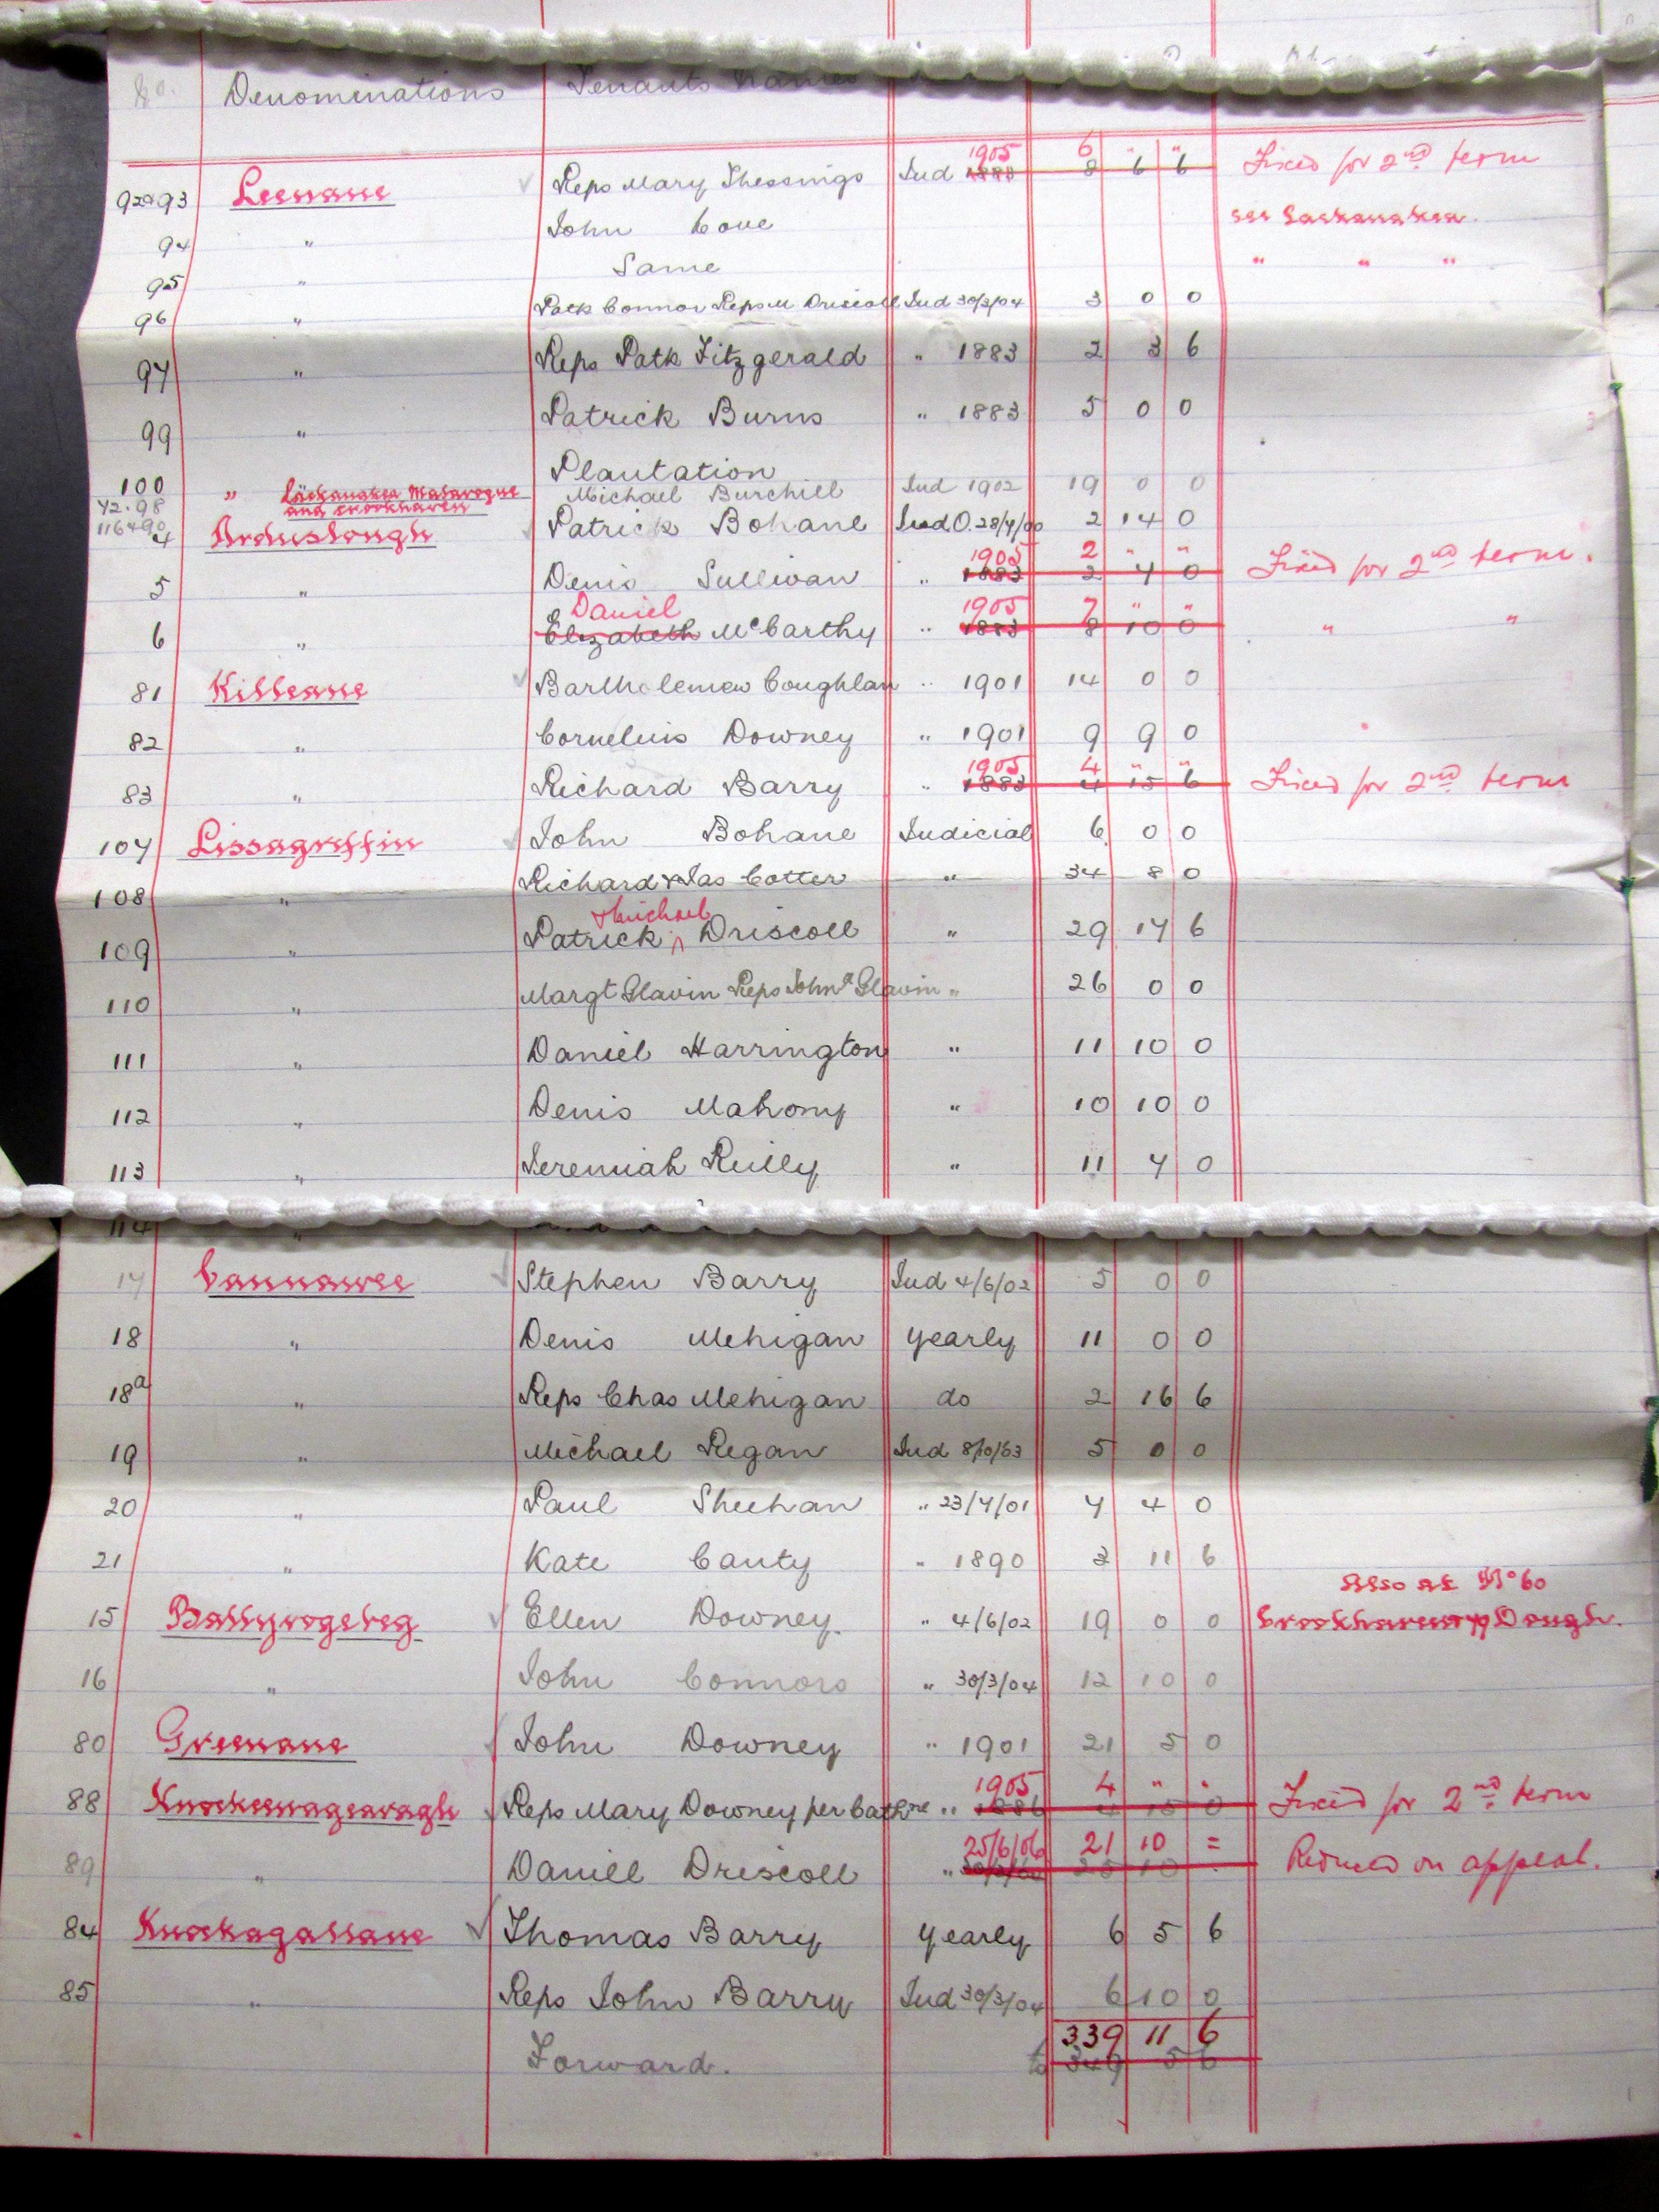 No. Denominations Tenants Names
92 & 93 Leenane Reps Mary Thessings Jud 1905 1883 6 " " 8 6 6 Fixed for 2nd term
94 " John Coue see Lackanakea
95 " Same " " "
96 " Patk Connor Reps M Driscoll Jud 30/3/04 3 0 0
97 " Reps Patk Fitzgerald " 1883 2 3 6
99 " Patrick Burns " 1883 5 0 0
100 " Plantation
72.98 Lackanakea Mabarogue Michael Burchill Jud 1902 19 0 0
116 & 90 and crookhaven
4 Arduslough Patrick Bohane Jud O. 28/7/00 2 14 0
5 " Denis Sullivan " 1905 1883 2 " " 2 7 0 Fixed for 2nd term.
6 " Daniel Elizabeth McCarthy " 1905 1883 7 " " 8 10 0 " "
81 Killeane Bartholemew Coughlan " 1901 14 0 0
82 " Cornelius Downey " 1901 9 9 0
83 " Richard Barry " 1905 1883 4 " " 4 15 6 Fixed for 2nd term
107 Lissagriffin John Bohane Judicial 6 0 0
108 " Richard & Jas Cotter " 34 8 0
109 " Patrick & Michael Driscoll " 29 17 6
110 " Margt Glavin Reps Johna Glavin " 26 0 0
111 " Daniel Harrington " 11 10 0
112 " Denis Mahony " 10 10 0
113 " Jeremiah Reilly " 11 7 0
114 "
17 Cannawee Stephen Barry Jud 4/6/02 5 0 0
18 " Denis Mehigan yearly 11 0 0
18a " Reps Chas Mehigan do 2 16 6
19 " Michael Regan Jud 8/10/63 5 0 0
20 " Paul Sheehan " 23/7/01 7 4 0
21 " Kate Canty " 1890 3 11 6
Also at No 60
15 Ballyrogeleg Ellen Downey. " 4/6/02 19 0 0 Crookhaven 77 Dough.
16 " John Connors " 30/3/04 12 10 0
80 Greenane John Downey " 1901 21 5 0
88 Knockeenageearagh Reps Mary Downey per Cathne " 1905 1886 4 " " 4 15 0 Fixed for 2nd term
89 " Daniel Driscoll " 25/6/06 21 10 = 25 10 Reduced on appeal.
84 Knockagallane Thomas Barry yearly 6 5 6
85 " Reps John Barry Jud 30/3/04 6 10 0
339 11 6
Forward. 349 5 6